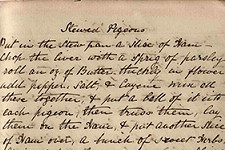 Stewed Pigeons
Put in the Stew pan a Slice of Ham –
Chop the liver with a Sprig of parsley
roll an oz of Butter thickly in flower
add pepper, Salt, & Cayenne mix all
these together, & put a Ball of it into
each pigeon, then truss them, lay
them on the Ham, & put another Slice
of Ham over, a bunch of Sweet Herbs